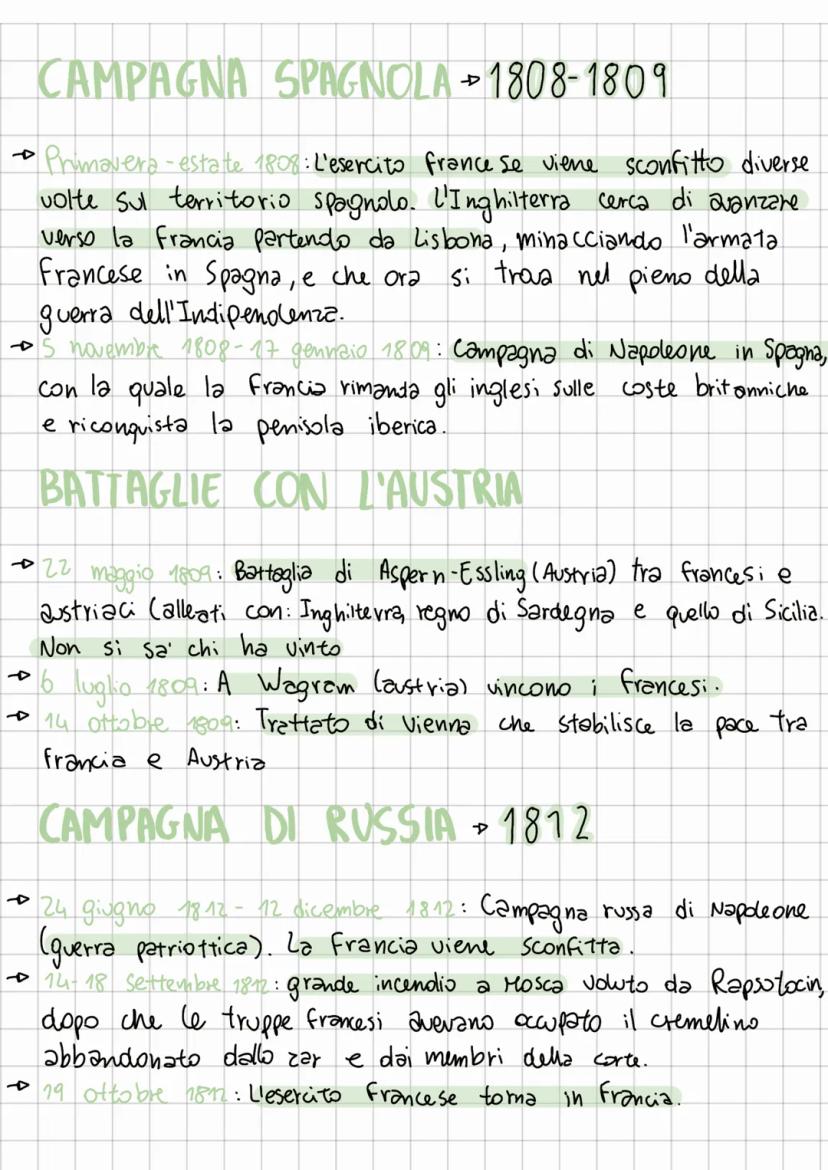 CAMPAGNA SPAGNOLA → 1808-1809
→ Primavera - estate 1808: L'esercito francese viene sconfitto diverse
volte sul territorio spagnolo. L'Inghilterra cerca di avanzare
verso la Francia partendo da Lisbona, minacciando l'armata
Francese in Spagna, e che ora si trova nel pieno della
guerra dell'Indipendenza.
→ 5 novembre 1808-17 gennaio 1809: Campagna di Napoleone in Spagna,
con la quale la Francia rimanda gli inglesi sulle coste britanniche
e riconquista la penisola iberica.
BATTAGLIE CON L'AUSTRIA
→ 22 maggio 1809: Battaglia di Aspern-Essling (Austria) tra francesi e
austriaci (alleati con: Inghilterra, regno di Sardegna e quello di Sicilia.
Non si sa' chi ha vinto
→ 6 luglio 1809: A Wagram (austria) vincono i francesi.
→ 14 ottobre 1809: Trattato di Vienna che stabilisce la pace tra
Francia e Austria
CAMPAGNA DI RUSSIA → 1812
→ 24 giugno 1812 - 12 dicembre 1812: Campagna russa di Napoleone
(guerra patriottica). La Francia viene sconfitta.
→ 14-18 settembre 1812: grande incendio a Mosca voluto da Rapsotocin,
dopo che le truppe francesi avevano occupato il cremelino
abbandonato dallo zar e dai membri della corte.
→ 19 ottobre 1812: L'esercito Francese torna in Francia.